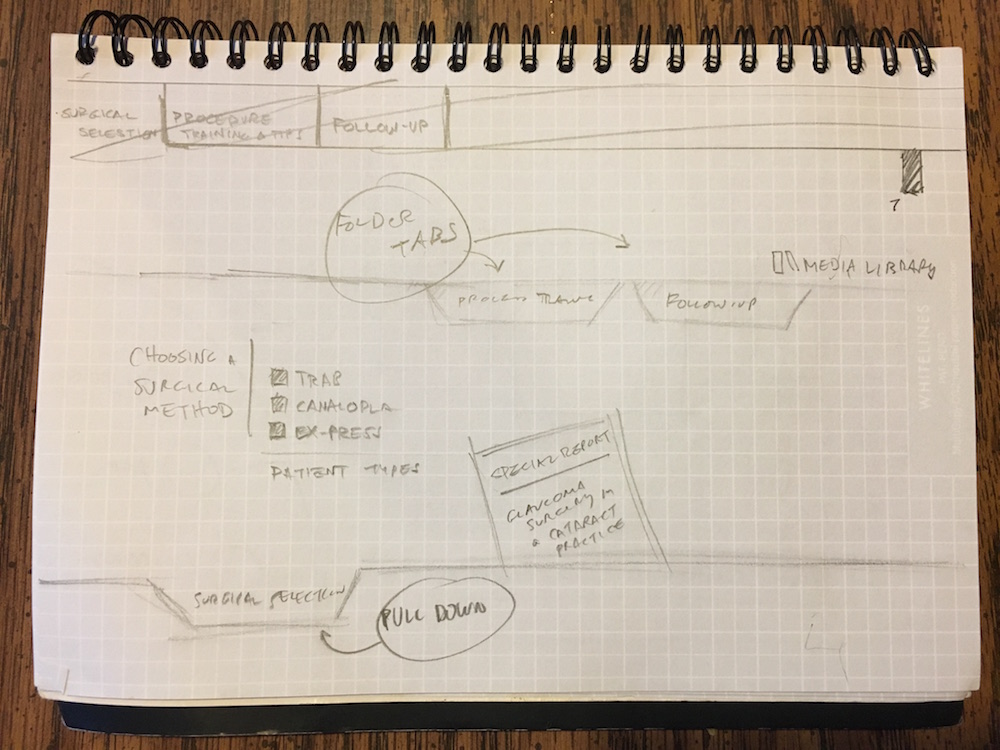 SURGICAL
SELECTION
PROCEDURE
TRAINING & TIPS
FOLLOW-UP
7
FOLDER
TABS
MEDIA LIBRARY
PROCESS
FOLLOW-UP
WHITELINES
CHOOSING A
SURGICAL
METHOD
TRAB
CANALOPLA
EX-PRESS
PATIENT TYPES
SPECIAL REPORT
GLAUCOMA
SURGERY IN
A CATARACT
PRACTICE
SURGICAL SELECTION
PULL DOWN